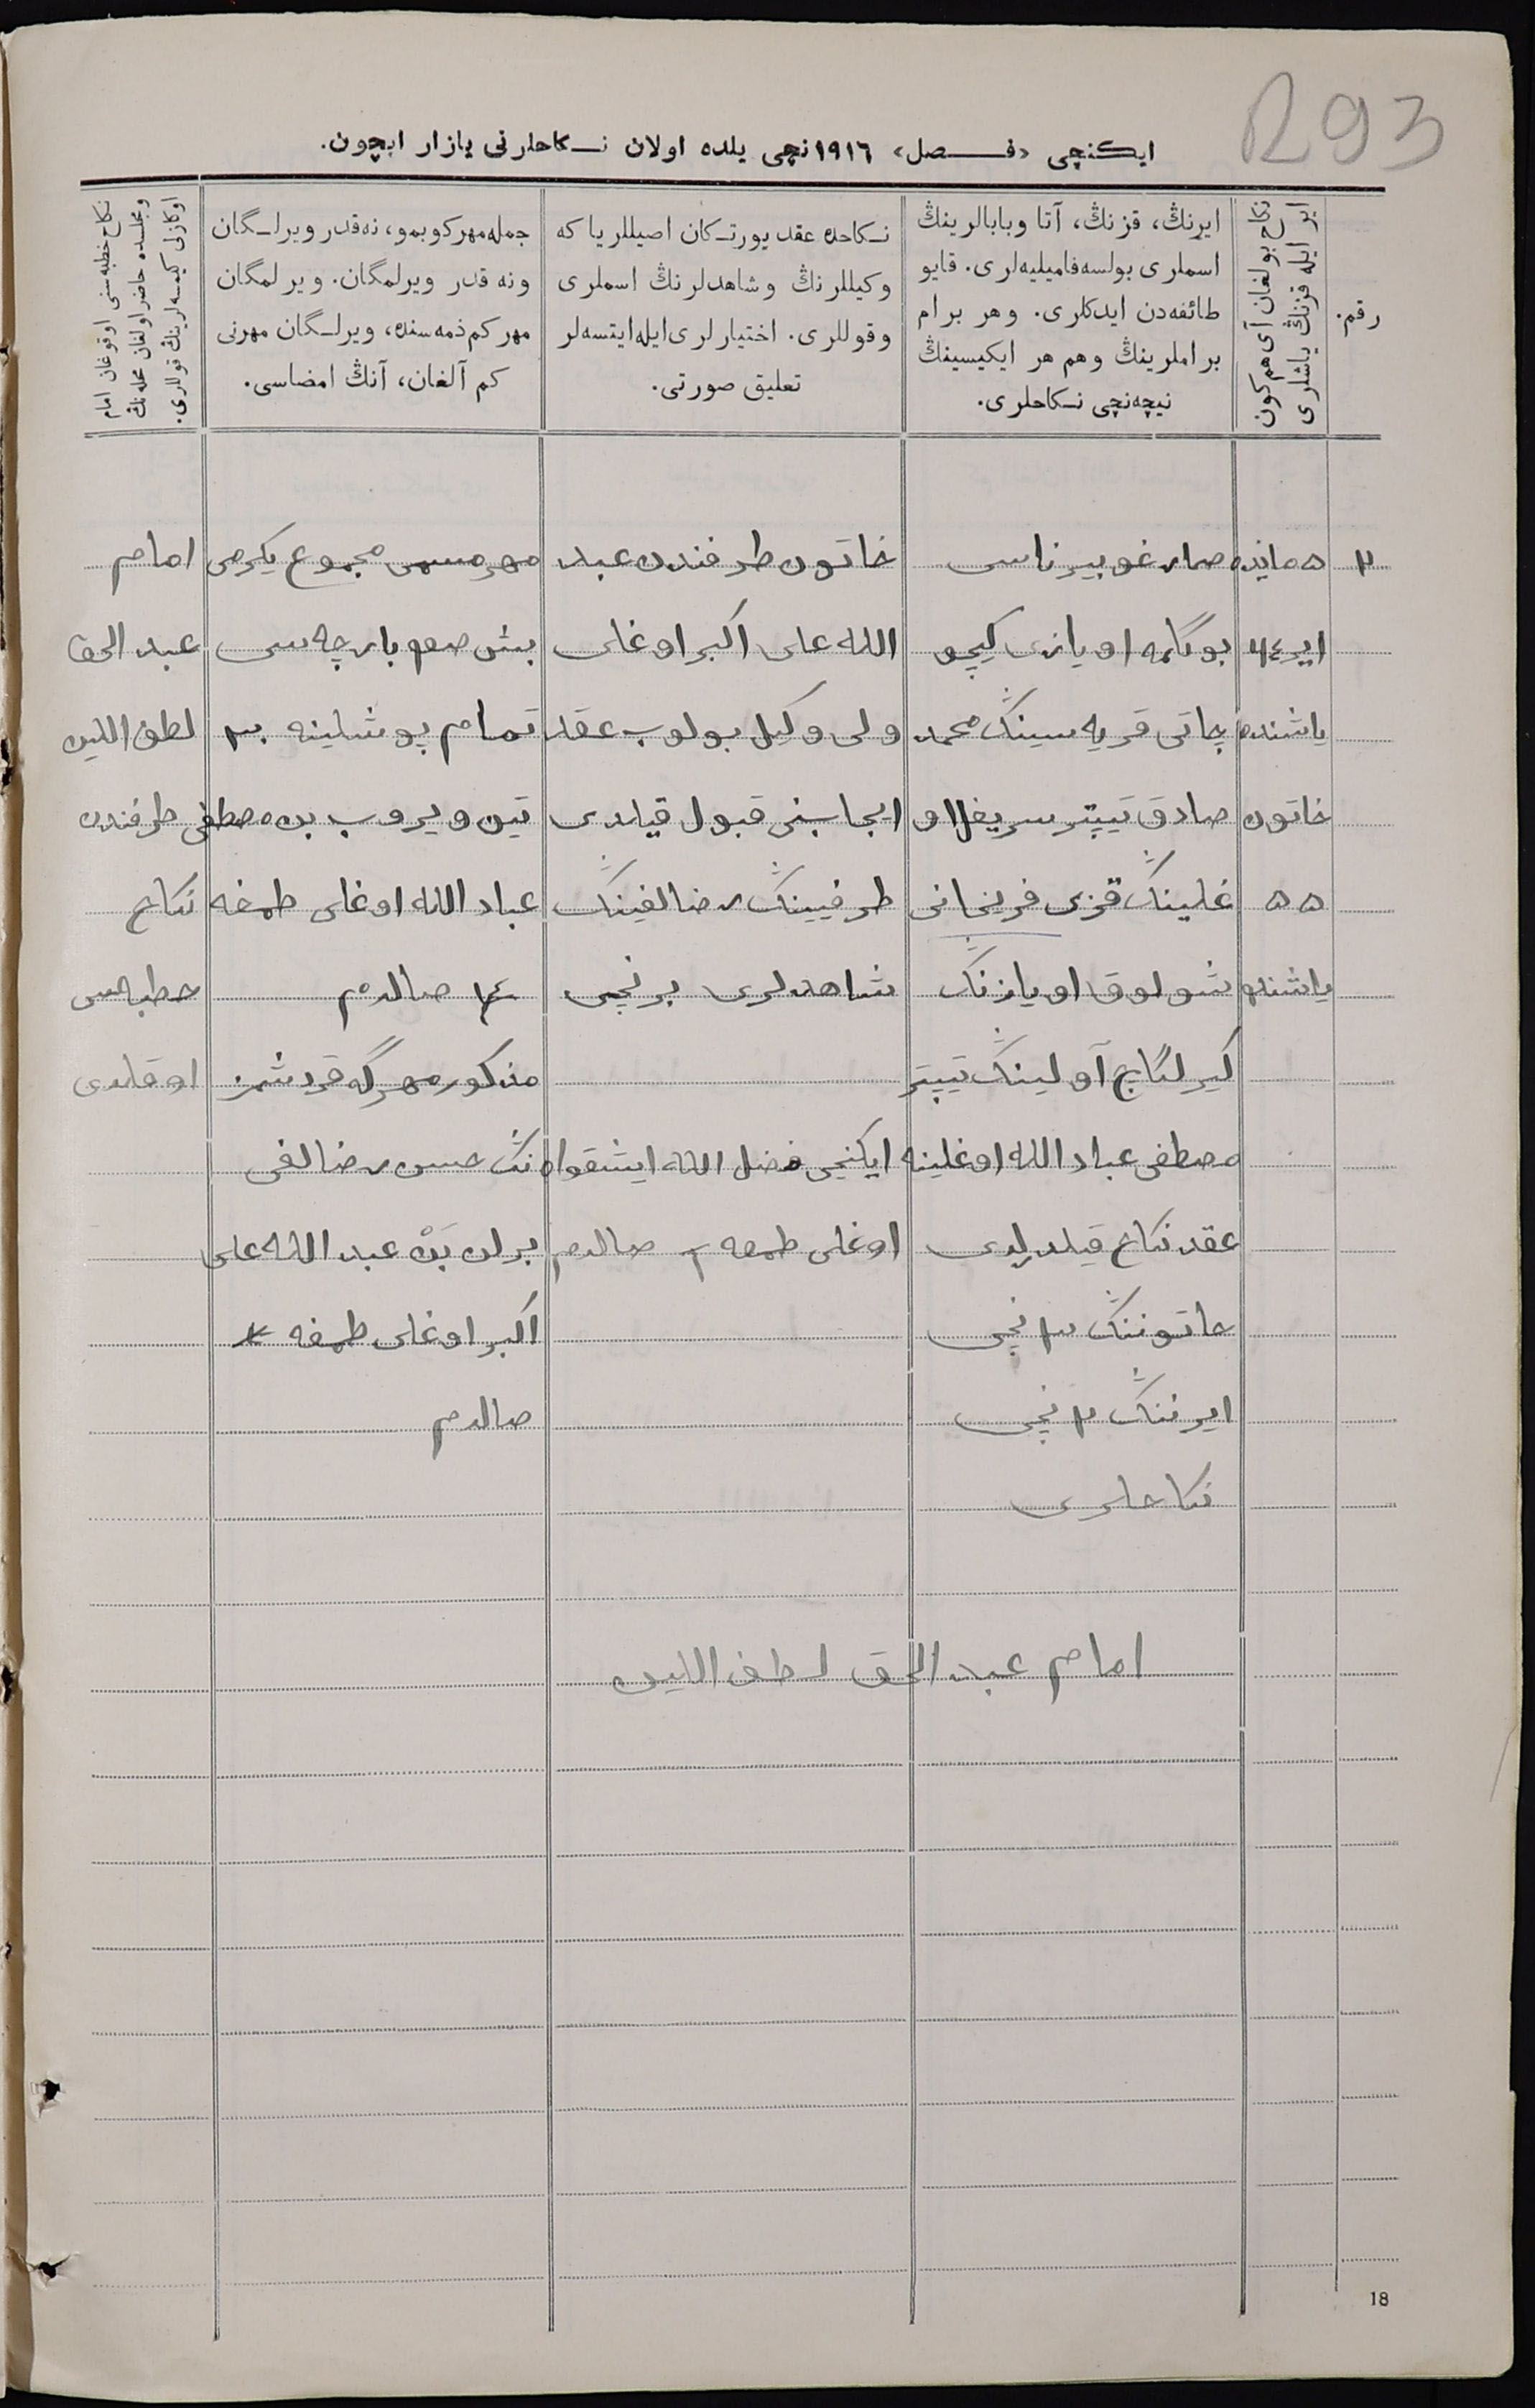 293
ایكنچی «فصل» ١٩١٦نچی یلده اولان نكاحلرنی یازار ایچون.
رقم.
نكاح بولغان آی هم كون
ایر ایله قزنڭ یاشلری
ایرنڭ، قزنڭ، آتا وبابالرینڭ
اسملری بولسه فامیلیه‌لری. قایو
طائفه‌دن ایدكلری. وهر برام
براملرینڭ وهم هر ایكیسینڭ
نیچه‌نچی نكاحلری.
نكاحده عقد یورتكان اصیللر یا كه
وكیللرنڭ وشاهدلرنڭ اسملری
وقوللری. اختیارلری ایله ایتسه‌لر
تعلیق صورتی.
جمله مهر كوبمو، نه‌قدر ویرلگان
ونه قدر ویرلمگان. ویرلمگان
مهر كم ذمه‌سنده، ویرلگان مهرنی
كم آلغان، آنڭ امضاسی.
نكاح خطبه‌سنی اوقوغان امام
ومجلسده حاضر اولغان محله‌نڭ
اوكازلی كیمسه‌لرینڭ قوللری.
٢
٥ مایده
ایر ٤٤
یاشنده
خاتون
٥٥
یاشنده
صمار غوبیرناسی
بوگلمه اویازی كیچو
چاتی قریه سینڭ محمد
صادق تیپتر سریفللا او
غلینڭ قزی فریخانی
شولوق اویازنڭ
كیرلگاچ آولینڭ تیپتر
مصطفی عباد الله اوغلینه
عقد نكاح قیلدیلدی
خاتوننڭ ٣ نچی
ایرننڭ ٢ نچی
نكاحلری
خاتون طرفندن عبد
الله علی اكبر اوغلی
ولی وكیل بولوب عقد
ایجابنی قبول قیلدی
طرفیینڭ رضالغینڭ
شاهدلری برنچی
ایكنچی فضل الله ایشقوان
اوغلی طمغه صالدم
مهر مسمی مجموع یكرمی
بش صوم بارچه سی
تمام بوشلینه بر
تین ویروب بن مصطفی
عباد الله اوغلی طمغه
صالدم
مذكور مهرگه قردشمز
نڭ حسن رضالغی
برلن بن عبد الله علی
اكبر اوغلی طمغه
صالدم
امام
عبد الحق
لطف الدین
طرفندن
نكاح
خطبه سی
اوقلدی
امام عبد الحق لطف الدین
18